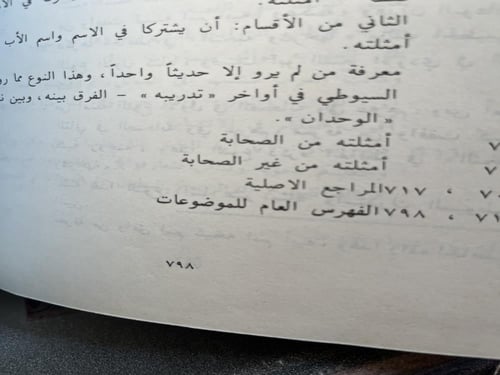 أمثلته.
الثاني من الأقسام: أن يشتركا في الاسم واسم الأب
أمثلته.
معرفة من لم يرو إلا حديثاً واحداً، وهذا النوع مما
السيوطي في أواخر « تدريبه » - الفرق بينه، وبين
« الوحدان ».
أمثلته من الصحابة
أمثلته من غير الصحابة
٧١٧ ، المراجع الاصلية
٧٩٨ ، ٧١ الفهرس العام للموضوعات
٧٩٨